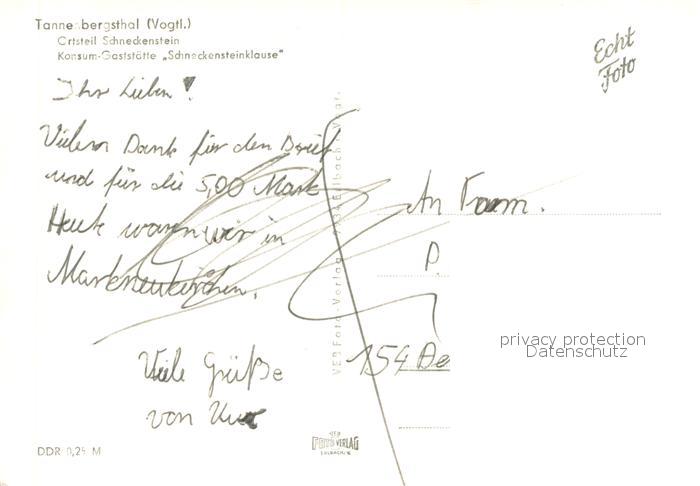 Tannenbergsthal (Vogtl.)
Ortsteil Schneckenstein
Konsum-Gaststätte „Schneckensteinklause"
Echt
Foto
Ihr Lieben!
Vielen Dank für den Brief
und für die 5,00 Mark
Heute waren wir in
Markneukirchen.
Viele Grüße
von
An Fam.
P.
154 De
privacy protection
Datenschutz
VEB Foto-Verlag
VEB
FOTO VERLAG
ERLBACH/V.
DDR 0,25 M